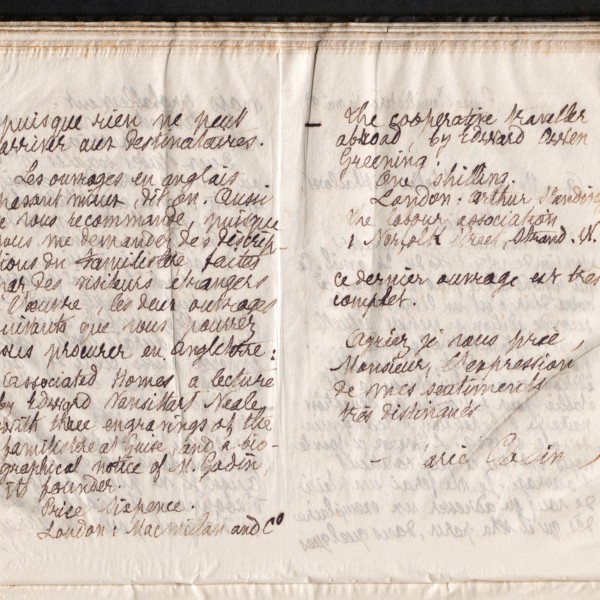 puisque rien ne peut
arriver aux destinataires.
Les ouvrages en anglais
passant mieux, dit on. Aussi
je vous recommande, puisque
vous me demandez des descrip-
tions du familistère faites
par des visiteurs étrangers
à l'œuvre, les deux ouvrages
suivants que vous pourrez
vous procurer en Angleterre:
Associated Homes a lecture
by Edward Vansittart Neale
with three engravings of the
familistère at Guise, and a bio-
graphical notice of M. Godin,
its founder.
Price Sixpence.
London: Macmillan and Co
— The cooperative traveller
abroad, by Edward Owen
Greening!
One shilling.
London: Arthur
The labour association
1 Norfolk Street, Strand. W.
ce dernier ouvrage est très
complet.
Agréez je vous prie,
Monsieur, l'expression
de mes sentiments
très distingués
Marie Godin